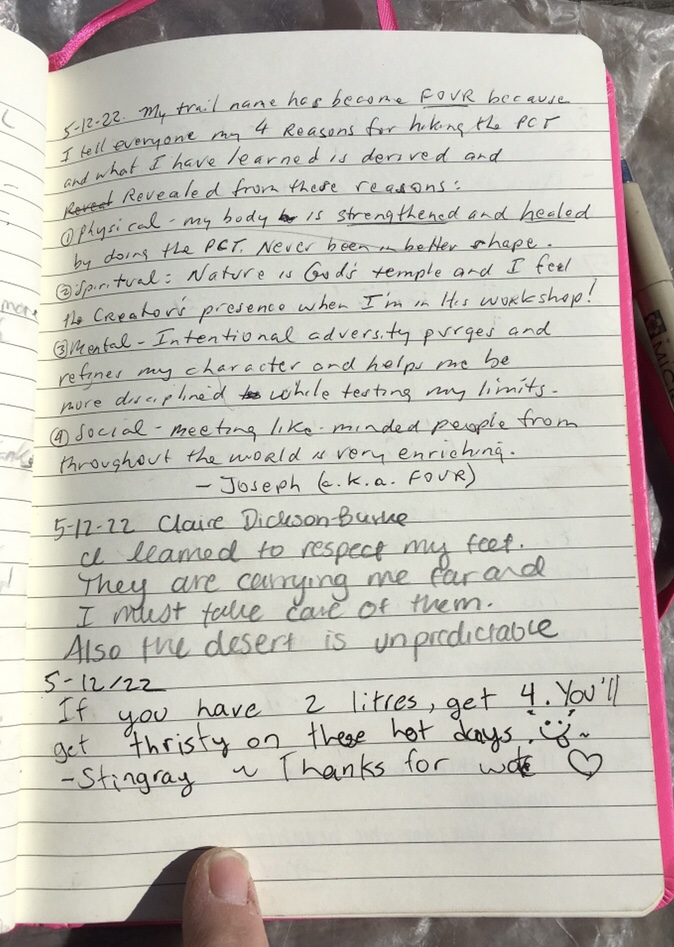 5-12-22. My trail name has become FOUR because
I tell everyone my 4 Reasons for hiking the PCT
and what I have learned is derived and
Reveal Revealed from these reasons:
① Physical - my body is strengthened and healed
by doing the PCT. Never been in better shape.
② Spiritual: Nature is God's temple and I feel
the Creator's presence when I'm in His workshop!
③ Mental - Intentional adversity purges and
refines my character and helps me be
more disciplined to while testing my limits.
④ Social - meeting like-minded people from
throughout the world is very enriching.
- Joseph (a.k.a. FOUR)
5-12-22 Claire Dickson-Burke
I learned to respect my feet.
They are carrying me far and
I must take care of them.
Also the desert is unpredictable
5-12/22
If you have 2 litres, get 4. You'll
get thristy on these hot days.
-Stingray ~ Thanks for
more